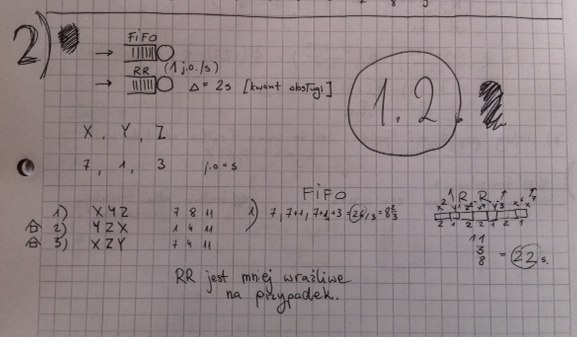 2)
FiFO
→
RR (1 j.o./s)
→ Δ = 2s [kwant obsługi]
1.2.
X, Y, Z
7, 1, 3 j.o = s
FiFO
1) XYZ 7 8 11
2) YZX 1 4 11
3) XZY 7 4 11
1) 7, 7+1, 7+1+3 = 26/3 = 8 2/3
RR
2 1 2 2 1 2 1
11
3
8
= 22 s.
RR jest mniej wrażliwe
na przypadek.